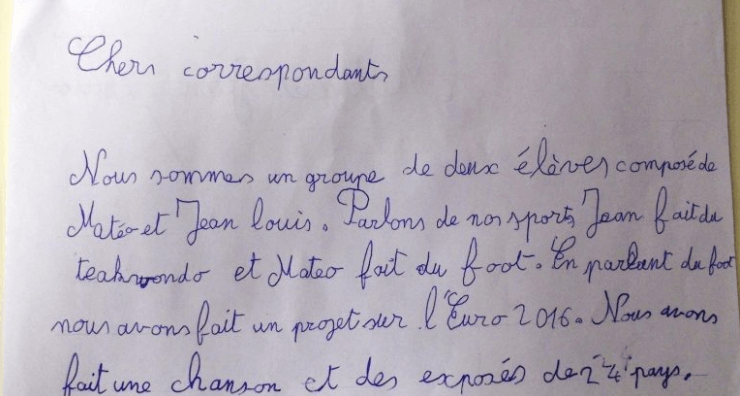 Chers correspondants
Nous sommes un groupe de deux élèves composé de
Matéo et Jean louis. Parlons de nos sports, Jean fait du
teakwondo et Mateo fait du foot. En parlant du foot
nous avons fait un projet sur l'Euro 2016. Nous avons
fait une chanson et des exposés de 24 pays.